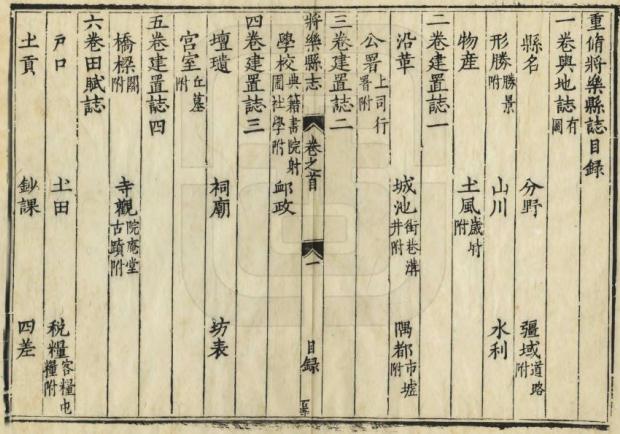 重脩將樂縣誌目録
一卷輿地誌有圖
縣名 分野 疆域道路附
形勝勝景附 山川 水利
物産 土風歲时附
二卷建置誌一
沿革 城池街巷溝井附 隅都市墟附
公署上司行署附
三卷建置誌二
將樂縣志 卷之首 一 目録
學校典籍書院射圃社學附 邮政
四卷建置誌三
壇壝 祠廟 坊表
宮室丘墓附
五卷建置誌四
橋樑關附 寺觀院庵堂古蹟附
六卷田賦誌
户口 土田 税糧客糧屯糧附
土貢 鈔課 四差